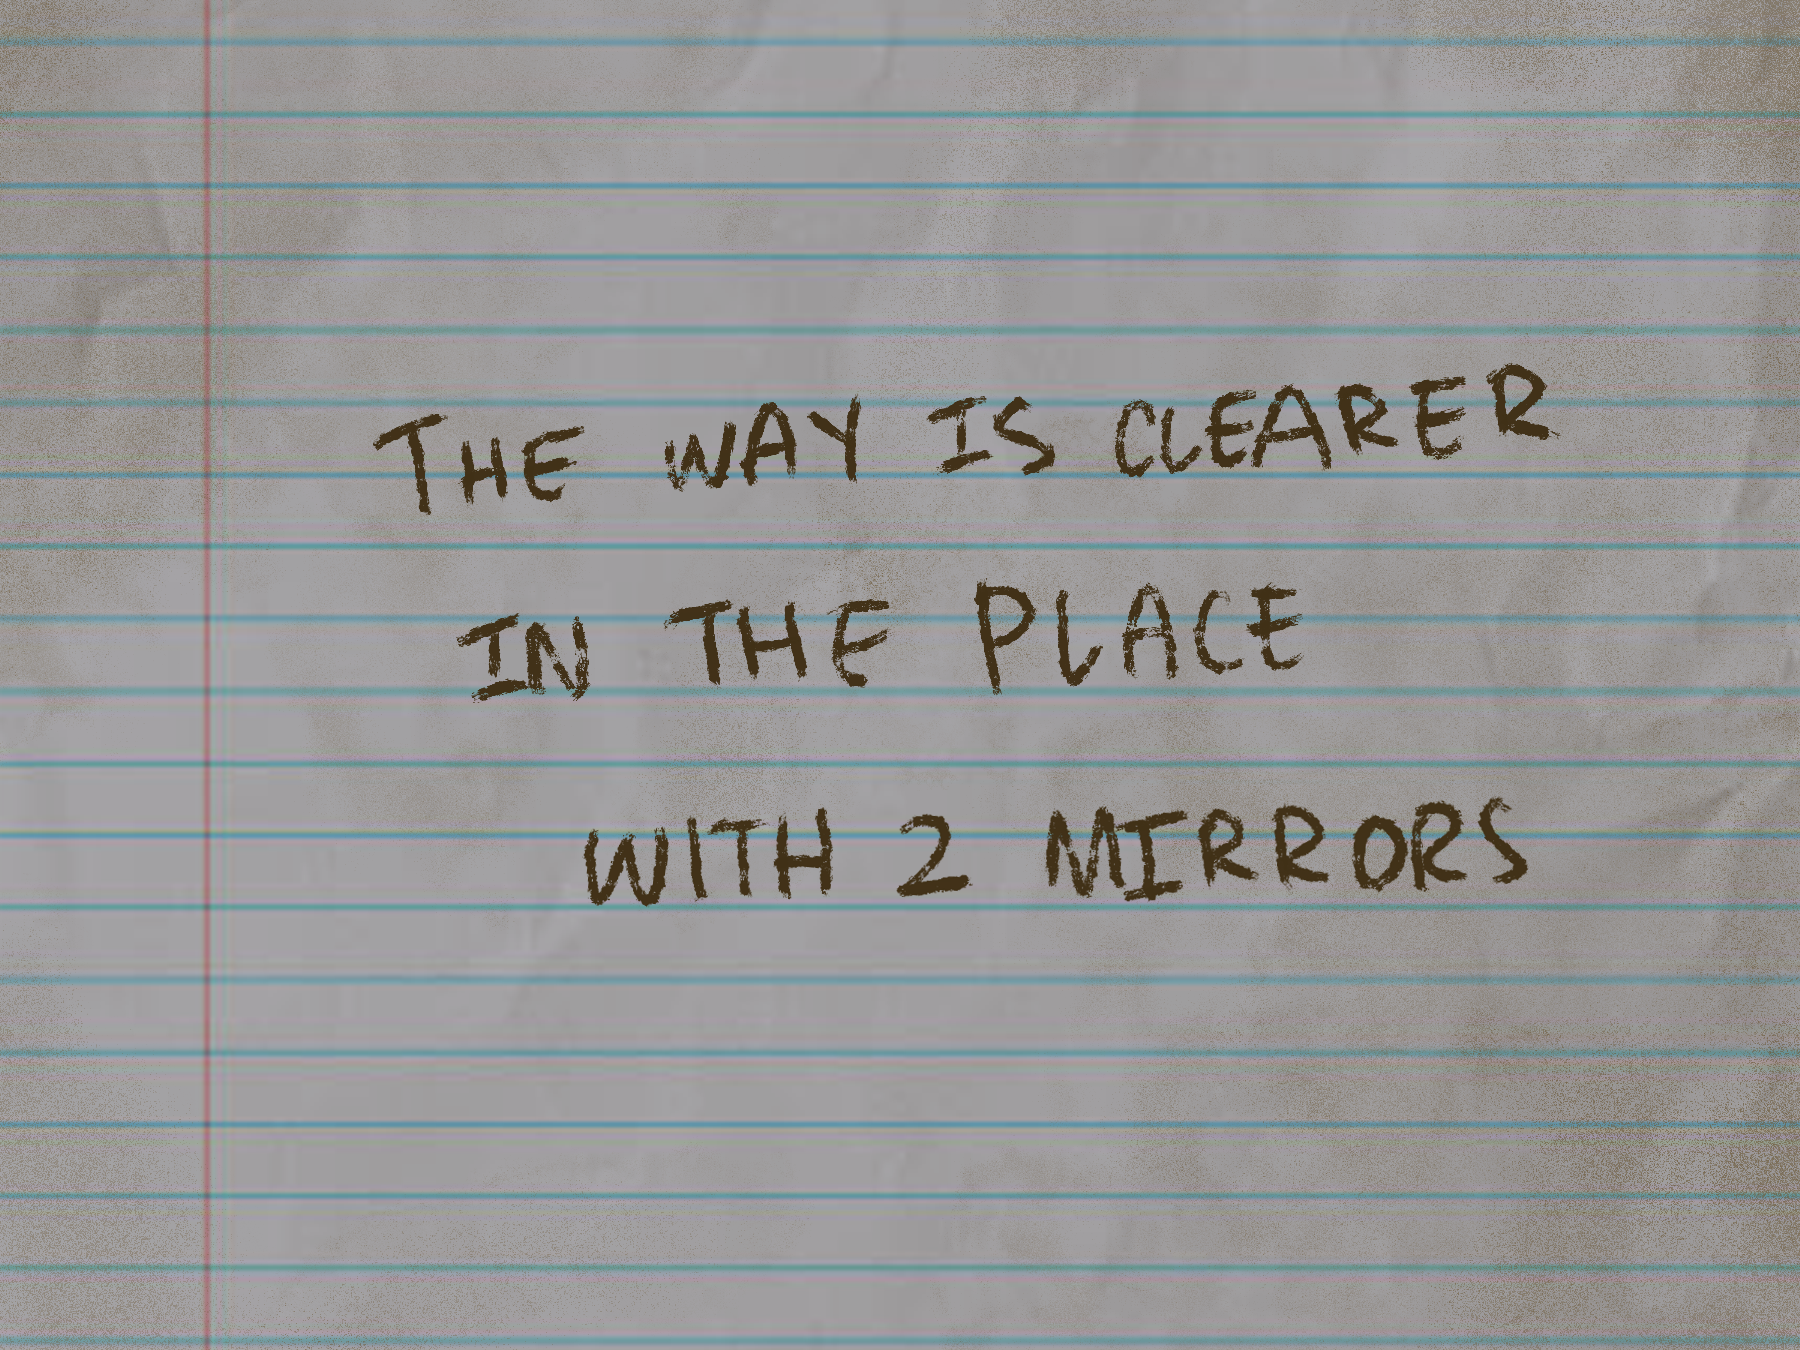 THE WAY IS CLEARER
IN THE PLACE
WITH 2 MIRRORS